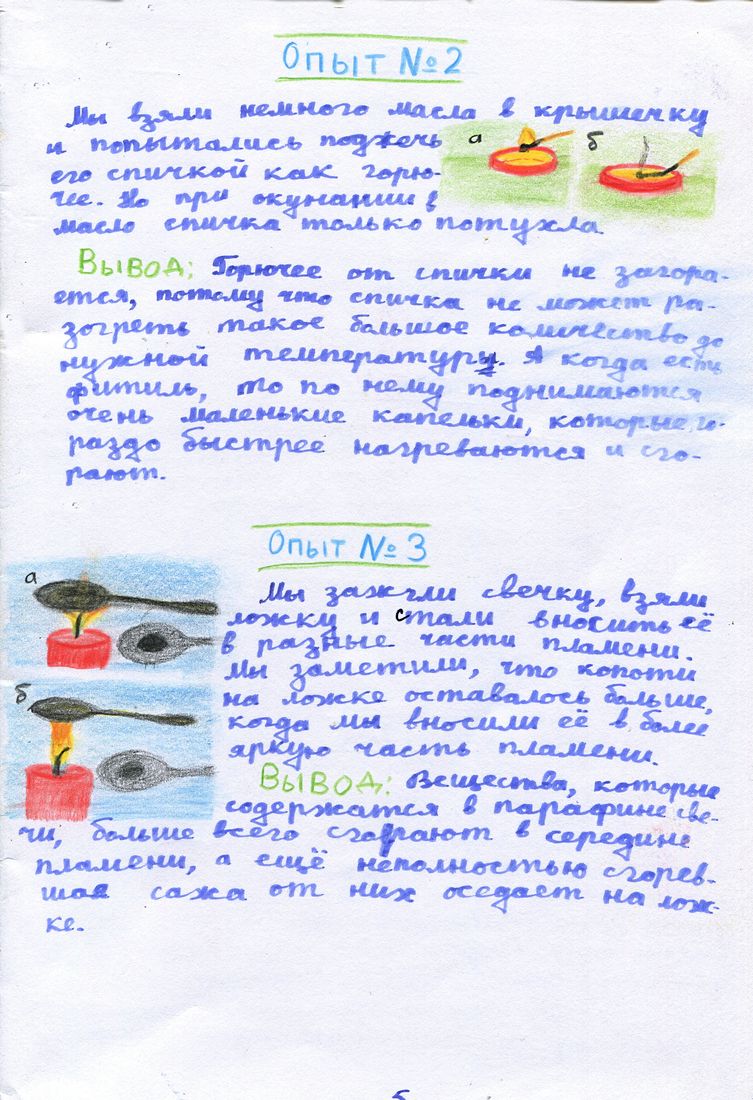 Опыт №2
Мы взяли немного масла в крышечку
и попытались поджечь
его спичкой как горю-
чее. Но при окунании в
масло спичка только потухла.
а
б
Вывод: Горючее от спички не загора-
ется, потому что спичка не может ра-
зогреть такое большое количество до
нужной температуры. А когда есть
фитиль, то по нему поднимаются
очень маленькие капельки, которые го-
раздо быстрее нагреваются и сго-
рают.
Опыт №3
а
б
Мы зажгли свечку, взяли
ложку и стали вносить её
в разные части пламени.
Мы заметили, что копоти
на ложке оставалось больше,
когда мы вносили её в более
яркую часть пламени.
Вывод: Вещества, которые
содержатся в парафине све-
чи, больше всего сгорают в середине
пламени, а ещё неполностью сгорев-
шая сажа от них оседает на лож-
ке.
5